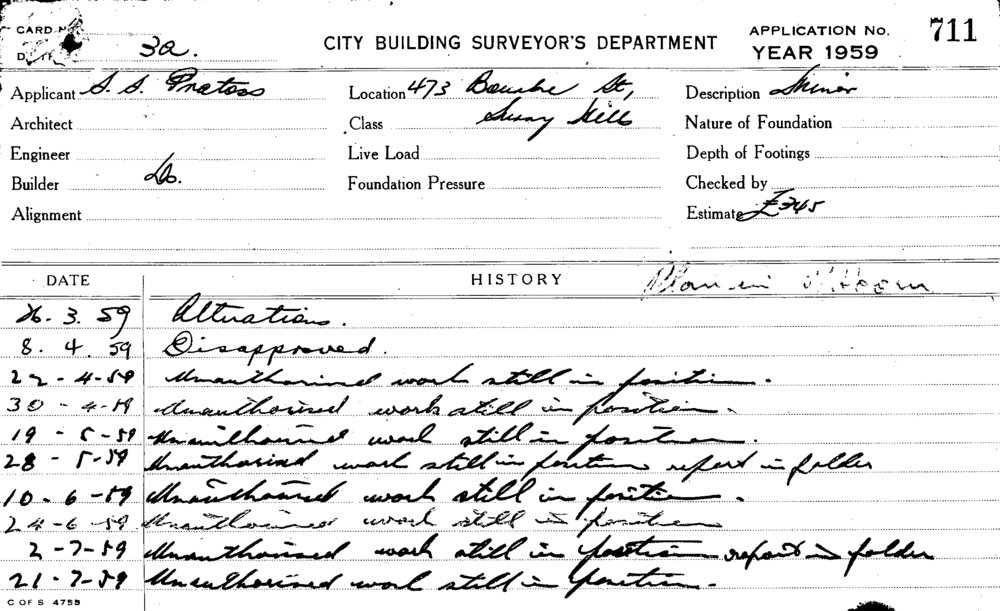 CARD No.
3a. CITY BUILDING SURVEYOR'S DEPARTMENT APPLICATION No. 711
YEAR 1959
Applicant S. S. Location 473 Bourke St, Description Minor
Architect Class Surry Hills Nature of Foundation
Engineer Live Load Depth of Footings
Builder Do. Foundation Pressure Checked by
Alignment Estimate £345
DATE HISTORY Plan in
26. 3. 59 Alterations.
8. 4. 59 Disapproved.
22-4-59 Unauthorised work still in position.
30-4-59 Unauthorised work still in position.
19-5-59 Unauthorised work still in position.
28-5-59 Unauthorised work still in position report in folder
10-6-59 Unauthorised work still in position.
24-6-59 Unauthorised work still in position
2-7-59 Unauthorised work still in position report in folder
21-7-59 Unauthorised work still in position.
C OF S 4755